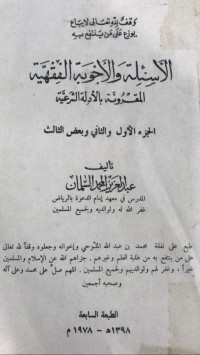 وقف لله تعالى لا يباع
يوزع على من ينتفع به
الأسئلة والأجوبة الفقهية
المقرونة بالأدلة الشرعية
الجزء الأول والثاني وبعض الثالث
تأليف
عبد العزيز المحمد السلمان
المدرس في معهد إمام الدعوة بالرياض
غفر الله له ولوالديه ولجميع المسلمين
طبع على نفقة محمد بن عبد الله وإخوانه وجعلوه وقفاً لله تعالى
على من ينتفع به من طلبة العلم وغيرهم . جزاهم الله عن الإسلام والمسلمين
خيراً ، وغفر لهم ولوالديهم ولجميع المسلمين . اللهم صل على محمد وعلى آله
وصحبه أجمعين
الطبعة السابعة
١٣٩٨هـ - ١٩٧٨ م